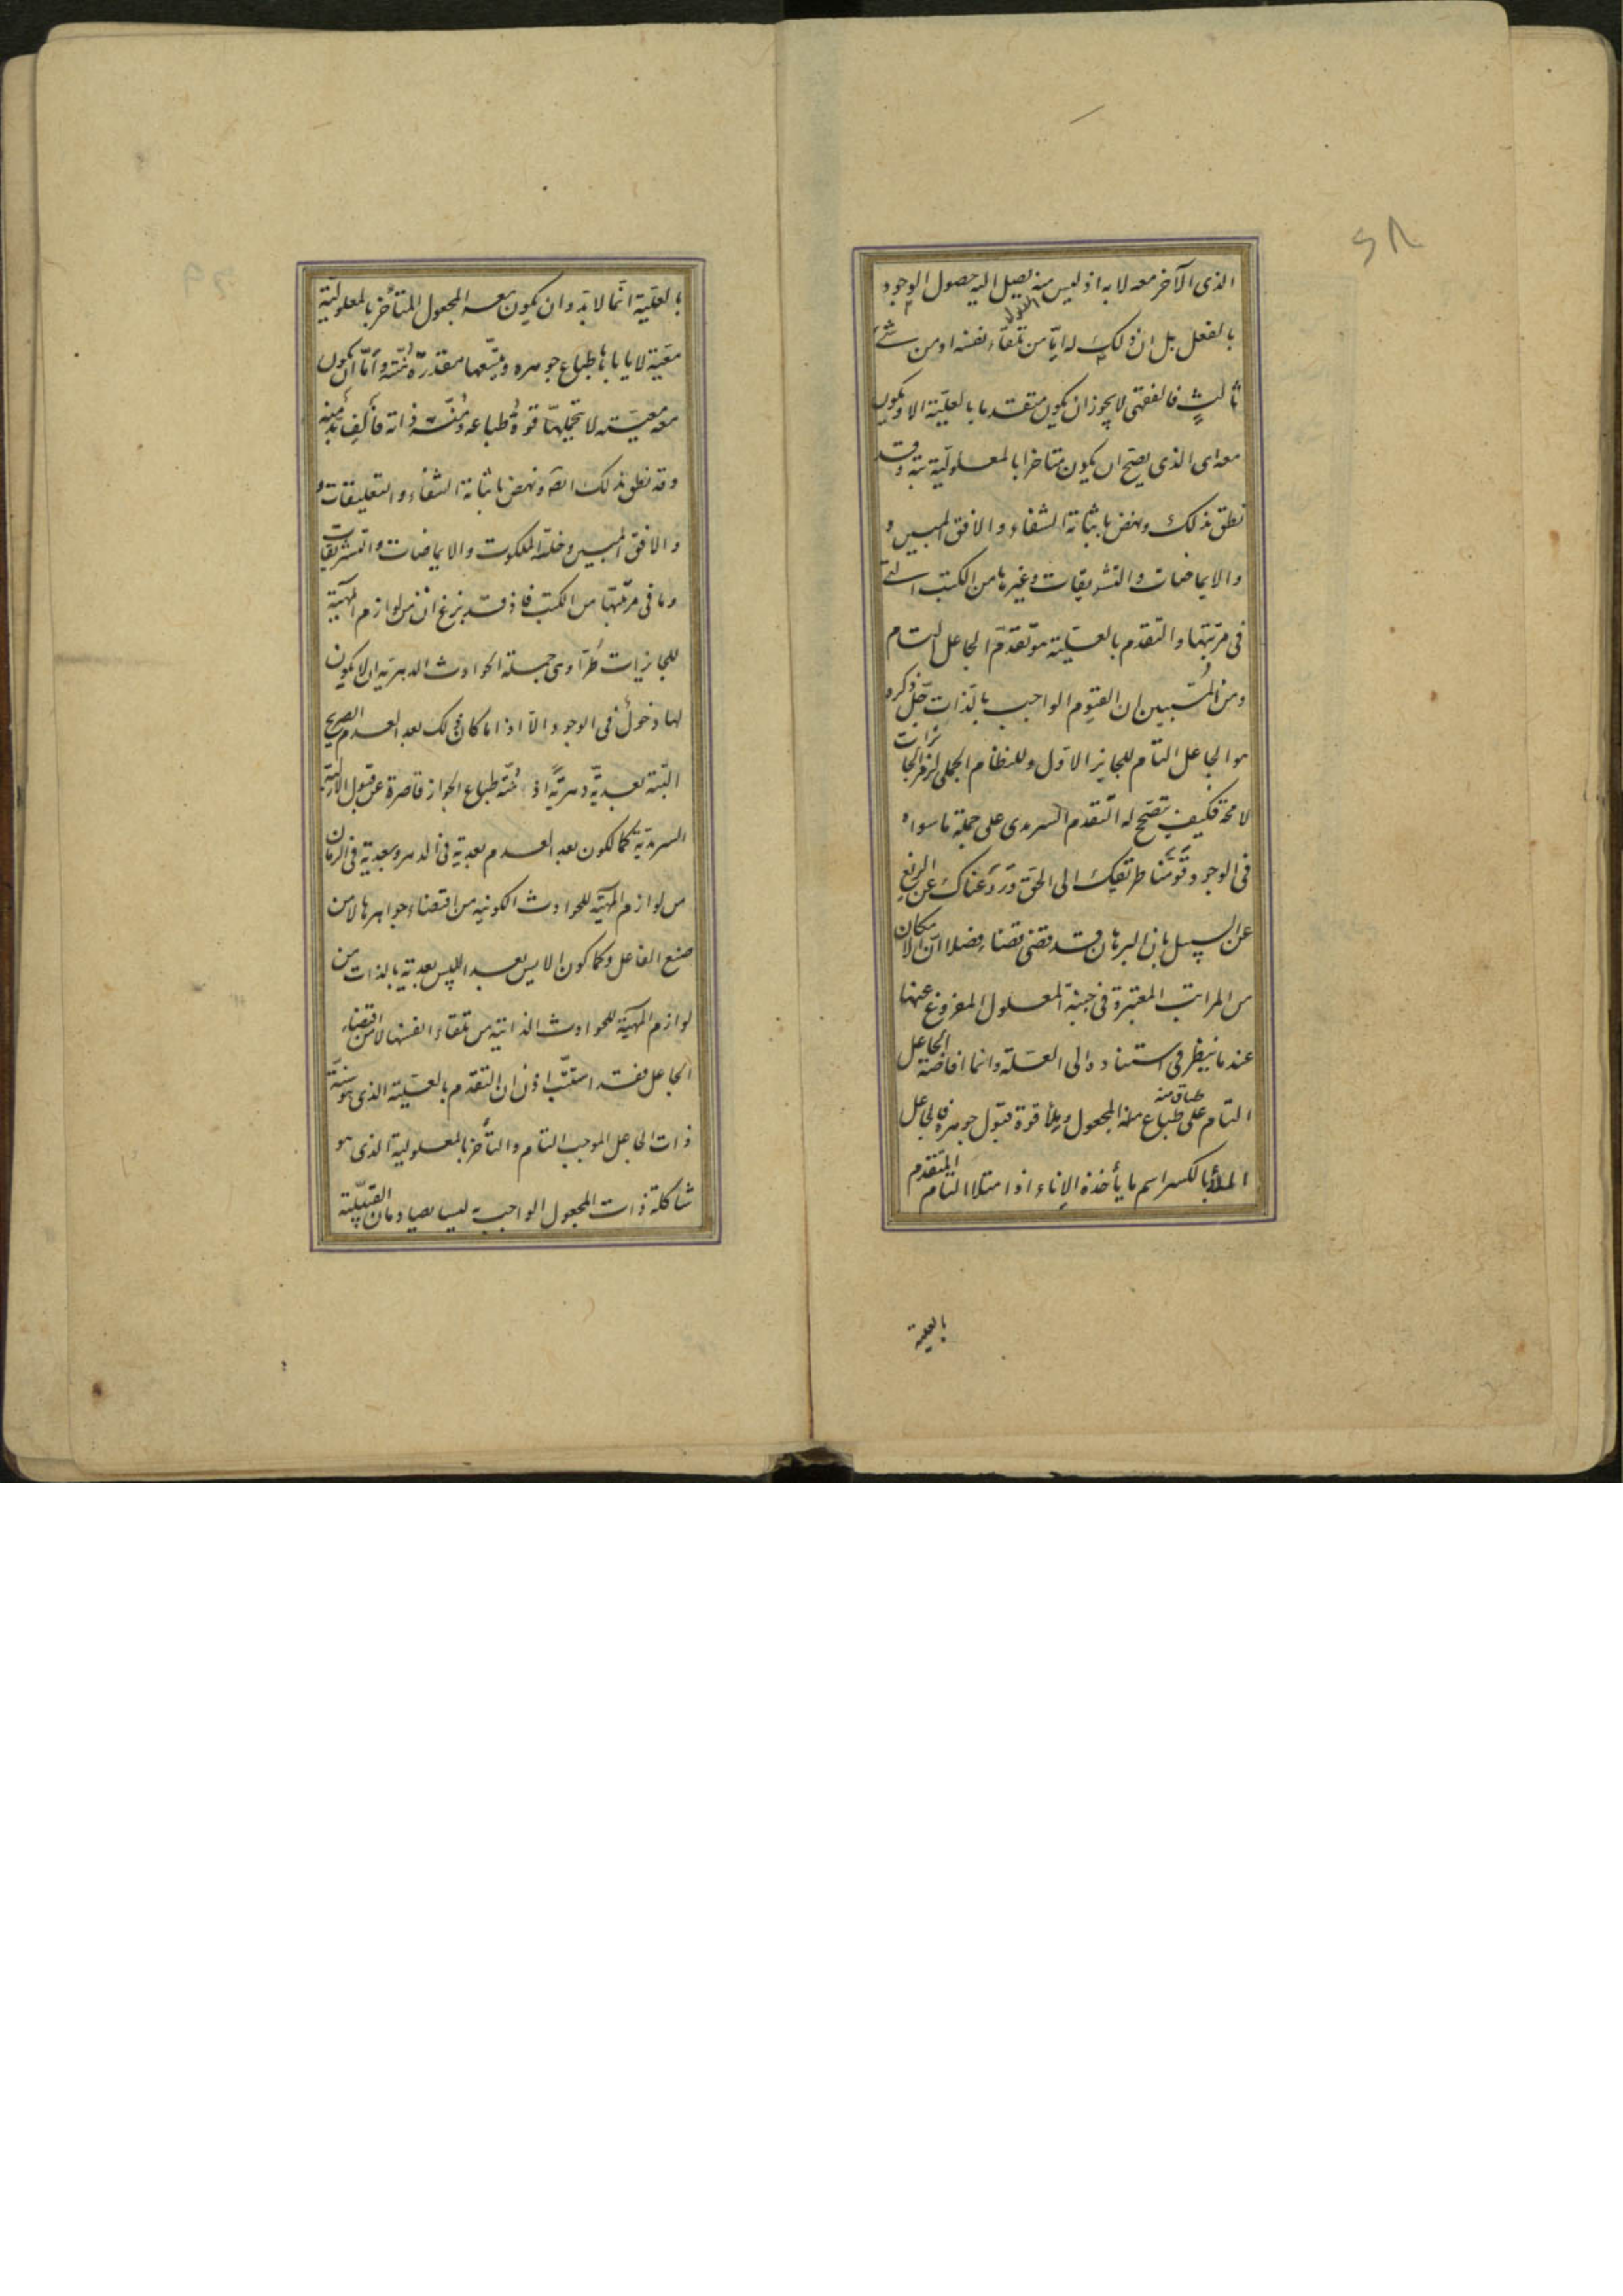 ٦٨
الذى الآخر معه لا به اذ ليس منه يصل اليه حصول الوجود
بالفعل بل ان ذلك له اما من تلقاء نفسه او من شئ
ثالث فالفقهى لا يجوز ان يكون متقدما بالعلية الا ويكون
معه اى الذى يصح ان يكون متاخرا بالمعلولية بتة وقد
نطق بذلك ونهض باثباته الشفاء والافق المبين و
والايماضات والتشريقات وغيرها من الكتب التى
فى مرتبتها والتقدم بالعلية هو تقدم الجاعل التام
ومن المستبين ان القيوم الواجب بالذات جل ذكره
هو الجاعل التام للجايز الاول وللنظام الجملى لزمر الجايزات
لا محة فكيف يتصحح له التقدم السرمدى على جملة ما سواه
فى الوجود قومنا طريقك الى الحق وردعناك عن الزيغ
عن السبيل بان البرهان قد قضى قضاء فصلا ان الامكان
من المراتب المعتبرة فى جنبة المعلول المفروغ عنها
عند ما ينظر فى استناده الى العلة وانما افاضة الجاعل
التام على طباق منة طباع المجعول وملأ قوة قبول جوهره فالجاعل
الملأ بالكسر اسم ما يأخذه الاناء اذا امتلا التام المتقدم
بالعلية
بالعلية انما لا بد وان يكون معه المجعول المتأخر بالمعلولية
معية لا يأباها طباع جوهره ويسعها مقدرة منته واما ان يكون
معه معية لا تحتملها قوة طباعه ومنة ذاته فألف بد منه
وقد نطق بذلك ايضا ونهض باثباته الشفاء والتعليقات و
والافق المبين وخلسة الملكوت والايماضات والتشريقات
وما فى مرتبتها من الكتب فاذ قد بزغ ان من لوازم المهية
للجايزات طرا وهى جملة الحوادث الدهرية ان لا يكون
لها دخول فى الوجود الا اذا ما كان ذلك بعد العدم الصريح
البتة بعدية دهرية اذ منة طباع الجواز قاصرة عن قبول الازلية
السرمدية كما الكون بعد العدم بعدية فى الدهر وبعدية فى الزمان
من لوازم المهية للحوادث الكونية من اقتضاء جواهرها لا من
صنع الفاعل وكما كون الايس بعد الليس بعدية بالذات من
لوازم المهية للحوادث الذاتية من تلقاء انفسها لا من اقتضاء
الجاعل فقد استتب اذن ان التقدم بالعلية الذى هو سنة
ذات الجاعل الموجب التام والتأخر بالمعلولية الذى هو
شاكلة ذات المجعول الواجب به ليسا يصادمان القبلية